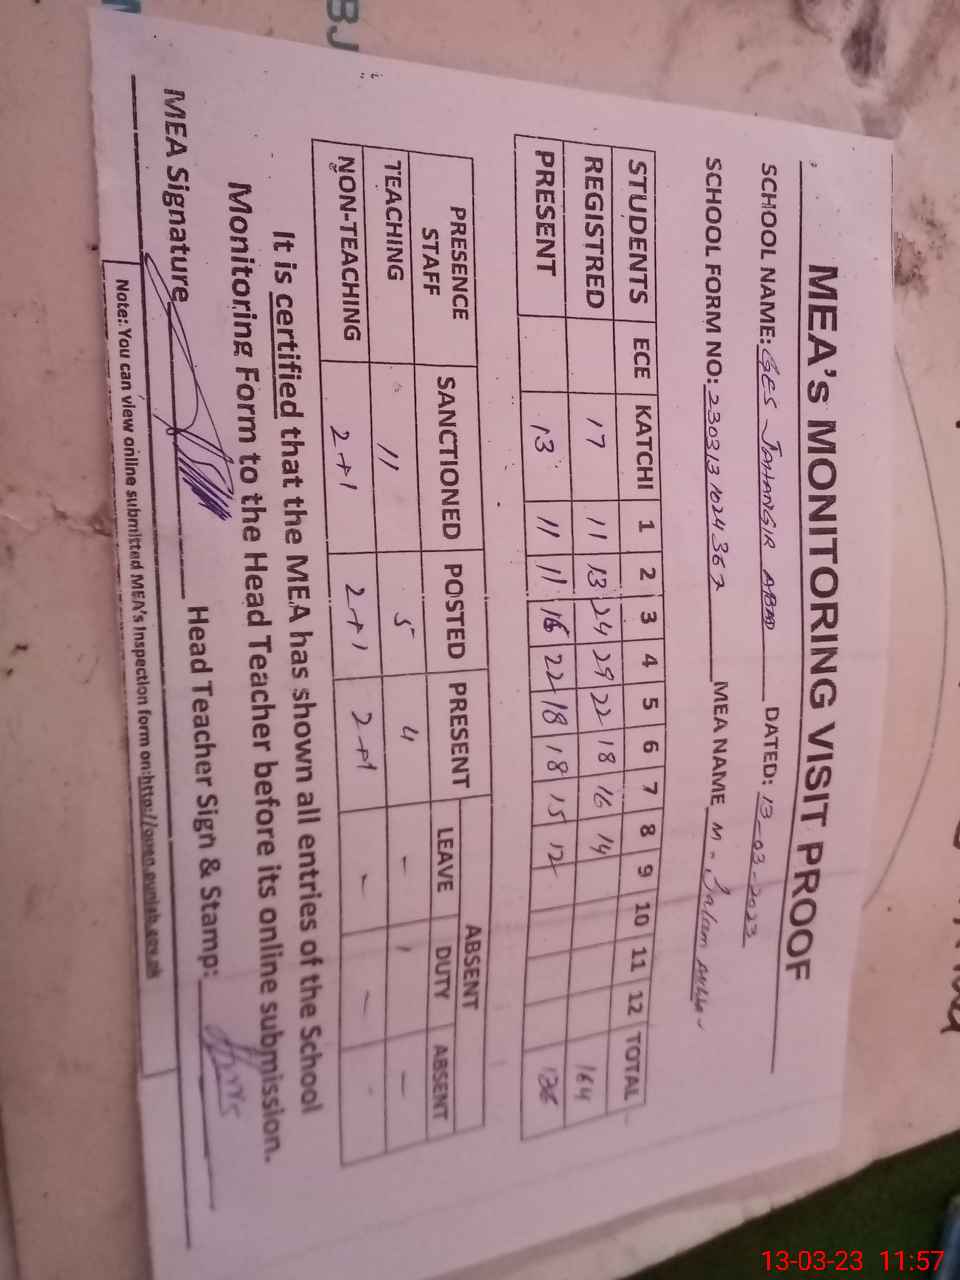 MEA's MONITORING VISIT PROOF
SCHOOL NAME: GES JAHANGIR ABAD DATED: 13-03-2023
SCHOOL FORM NO: 2303131024367 MEA NAME M. Salam
STUDENTS ECE KATCHI 1 2 3 4 5 6 7 8 9 10 11 12 TOTAL
REGISTRED 17 11 13 24 29 22 18 16 14 164
PRESENT 13 11 11 16 22 18 18 15 12 136
PRESENCE STAFF SANCTIONED POSTED PRESENT ABSENT
LEAVE DUTY ABSENT
TEACHING 11 5 4 - 1 -
NON-TEACHING 2+1 2+1 2+1 - -
It is certified that the MEA has shown all entries of the School
Monitoring Form to the Head Teacher before its online submission.
MEA Signature Head Teacher Sign & Stamp:
Note: You can view online submitted MEA's Inspection form on:http://open.punjab.gov.pk
BJ
13-03-23 11:57